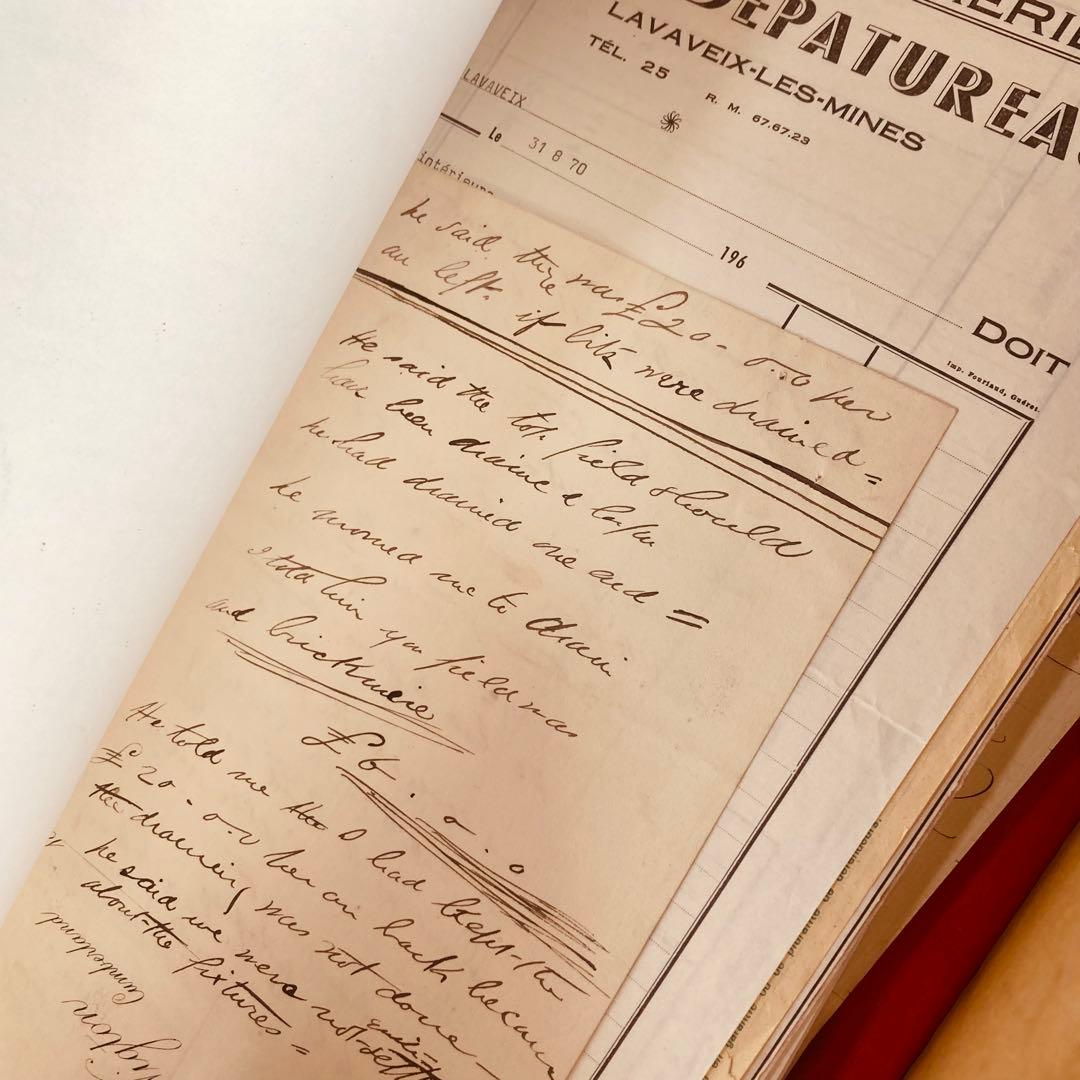 DEPATUREA
LAVAVEIX-LES-MINES
TÉL. 25
R. M. 67.67.23
LAVAVEIX
Le 31 8 70
196
DOIT
Imp. Pouriaud, Guéret.
he said there was £20-0..0 per
an left. if bits were drained =
He said the top field should
have been drained
he had drained one and =
he me to drain
I told him field was
and
£6. 0. 0
He told me the I had kept the
£20-0.0 per an back because
the draining was not done -
he said we were not quite
about the fixtures =
Cumberland